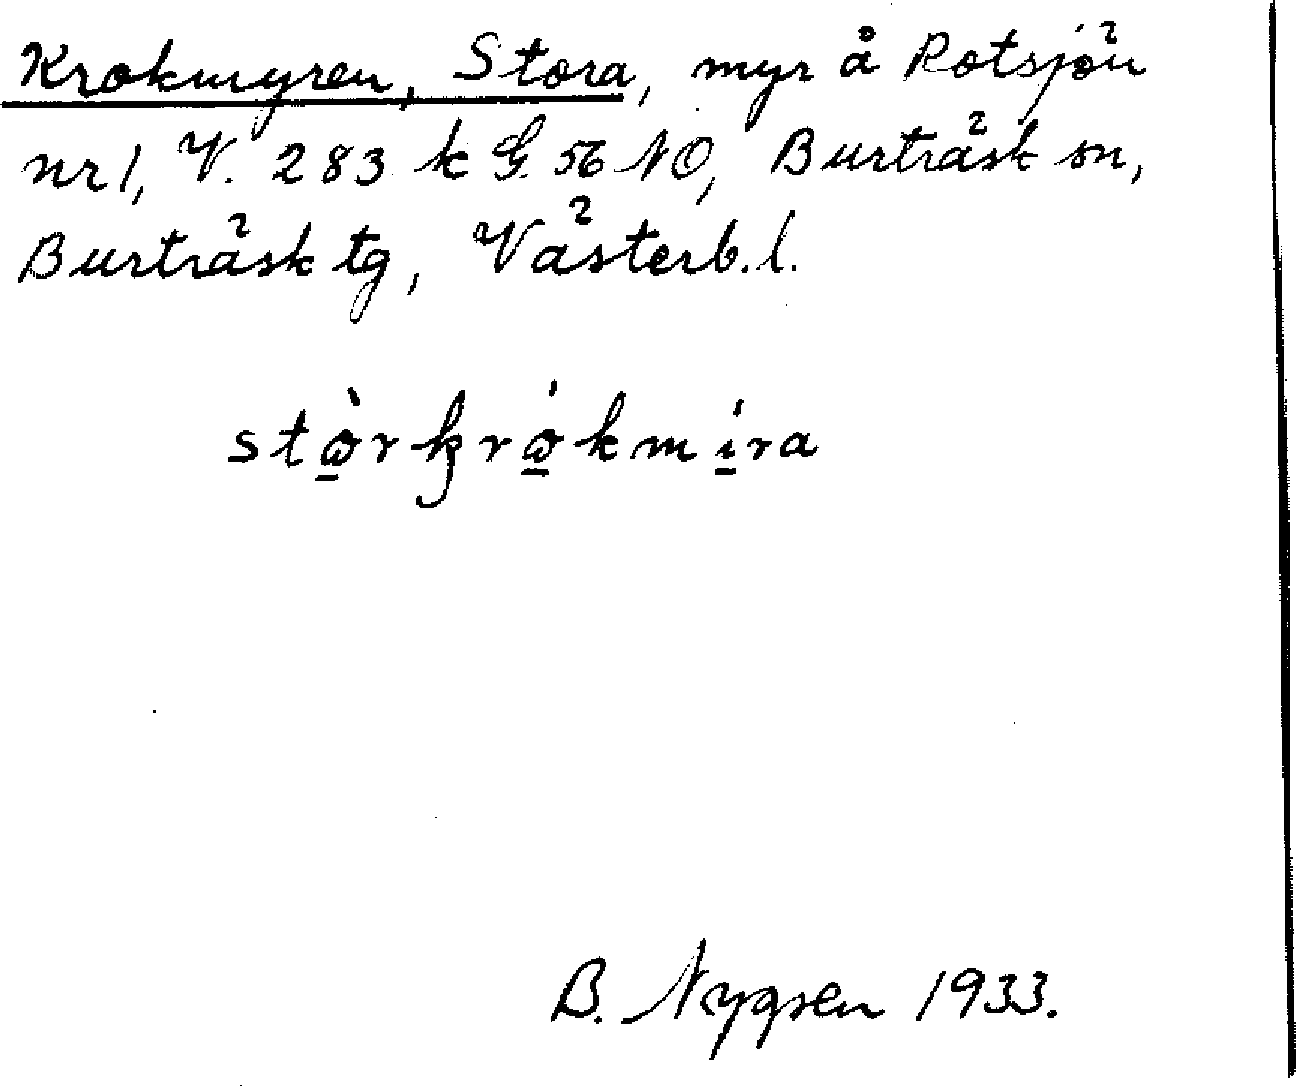 Krokmyren, Stora, myr å Rotsjön
nr 1, V. 283 k G. 56 NO, Burträsk sn,
Burträsk tg, Västerb. l.
stὼ̲rkrώ̲kmı̲́ra
B. Nygren 1933.